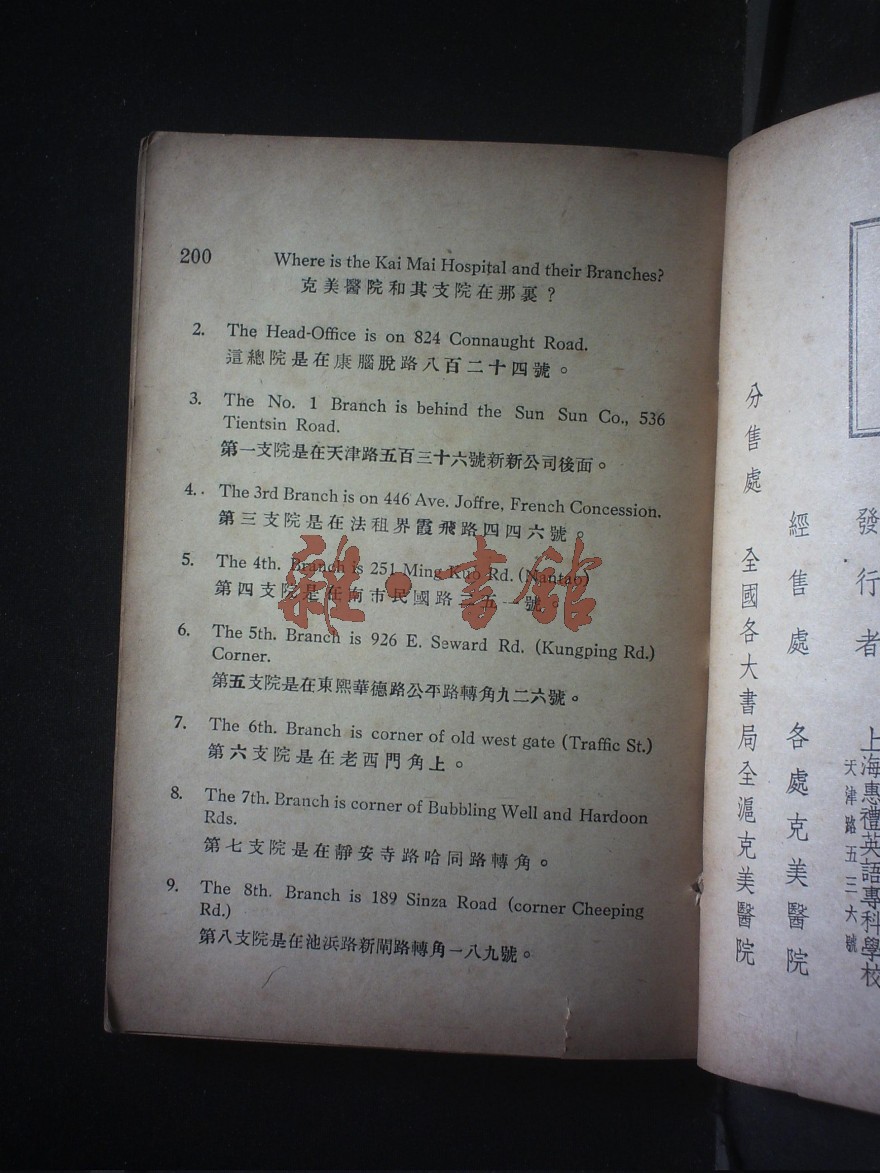 200 Where is the Kai Mai Hospital and their Branches?
克美醫院和其支院在那裏？
2. The Head-Office is on 824 Connaught Road.
這總院是在康腦脫路八百二十四號。
3. The No. 1 Branch is behind the Sun Sun Co., 536
Tientsin Road.
第一支院是在天津路五百三十六號新新公司後面。
4. The 3rd Branch is on 446 Ave. Joffre, French Concession.
第三支院是在法租界霞飛路四四六號。
5. The 4th. Branch is 251 Ming Kuo Rd. (Nantao)
第四支院是在南市民國路二五一號。
6. The 5th. Branch is 926 E. Seward Rd. (Kungping Rd.)
Corner.
第五支院是在東熙華德路公平路轉角九二六號。
7. The 6th. Branch is corner of old west gate (Traffic St.)
第六支院是在老西門角上。
8. The 7th. Branch is corner of Bubbling Well and Hardoon
Rds.
第七支院是在靜安寺路哈同路轉角。
9. The 8th. Branch is 189 Sinza Road (corner Cheeping
Rd.)
第八支院是在池浜路新閘路轉角一八九號。
雜·書館
發行者 上海惠禮英語專科學校
天津路五三六號
經售處 各處克美醫院
分售處 全國各大書局全滬克美醫院